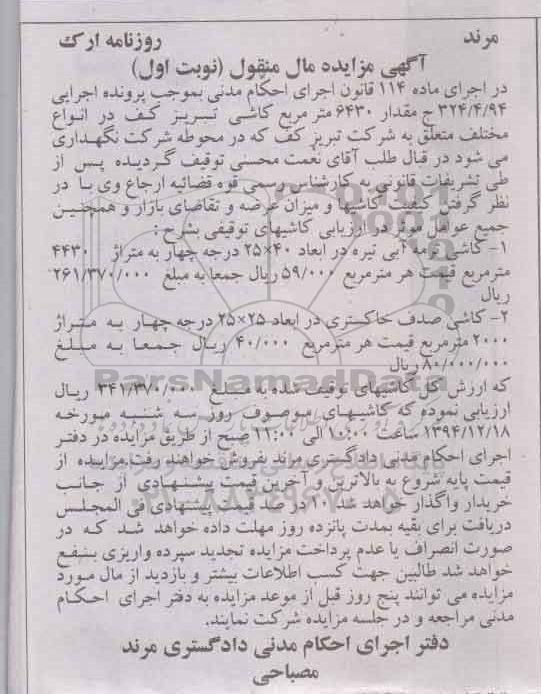 مرند
روزنامه ارک
آگهی مزایده مال منقول (نوبت اول)
در اجرای ماده ۱۱۴ قانون اجرای احکام مدنی بموجب پرونده اجرایی
۳۲۴/۴/۹۴ ج مقدار ۶۴۳۰ متر مربع کاشی تبریز کف در انواع
مختلف متعلق به شرکت تبریز کف که در محوطه شرکت نگهداری
می شود در قبال طلب آقای نعمت محسنی توقیف گردیده پس از
طی تشریفات قانونی به کارشناس رسمی قوه قضائیه ارجاع وی با در
نظر گرفتن کیفیت کاشیها و میزان عرضه و تقاضای بازار و همچنین
جمیع عوامل موثر در ارزیابی کاشیهای توقیفی بشرح :
۱- کاشی ترمه آبی تیره در ابعاد ۴۰×۲۵ درجه چهار به متراژ ۴۴۳۰
مترمربع قیمت هر مترمربع ۵۹/۰۰۰ ریال جمعا به مبلغ ۲۶۱/۳۷۰/۰۰۰
ریال
۲- کاشی صدف خاکستری در ابعاد ۲۵×۲۵ درجه چهار به متراژ
۲۰۰۰ مترمربع قیمت هر مترمربع ۴۰/۰۰۰ ریال جمعا به مبلغ
۸۰/۰۰۰/۰۰۰ ریال
که ارزش کل کاشیهای توقیف شده به مبلغ ۳۴۱/۳۷۰/۰۰۰ ریال
ارزیابی نموده که کاشیهای موصوف روز سه شنبه مورخه
۱۳۹۴/۱۲/۱۸ ساعت ۱۰:۰۰ الی ۱۱:۰۰ صبح از طریق مزایده در دفتر
اجرای احکام مدنی دادگستری مرند بفروش خواهند رفت.مزایده از
قیمت پایه شروع به بالاترین و آخرین قیمت پیشنهادی از جانب
خریدار واگذار خواهد شد ۱۰ در صد قیمت پیشنهادی فی المجلس
دریافت برای بقیه بمدت پانزده روز مهلت داده خواهد شد که در
صورت انصراف یا عدم پرداخت مزایده تجدید سپرده واریزی بنفع
خواهد شد طالبین جهت کسب اطلاعات بیشتر و بازدید از مال مورد
مزایده می توانند پنج روز قبل از موعد مزایده به دفتر اجرای احکام
مدنی مراجعه و در جلسه مزایده شرکت نمایند.
دفتر اجرای احکام مدنی دادگستری مرند
مصباحی
ParsNamadData